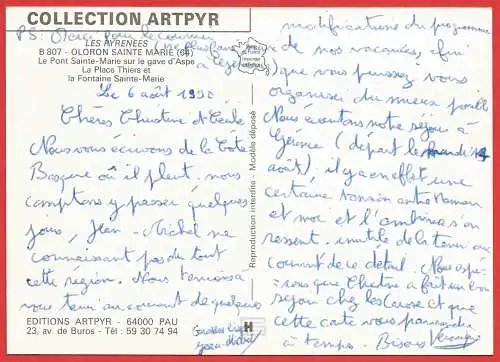 COLLECTION ARTPYR
LES PYRENEES
B 807 - OLORON SAINTE MARIE (64)
Le Pont Sainte-Marie sur le gave d'Aspe
La Place Thiers et
la Fontaine Sainte-Marie
PS: Merci pour le courrier
Le 6 août 1990
Chères Christine et Cécile
Nous vous écrivons de la Côte
Basque où il pleut. nous
comptons y passer quelques
jours, Jean-Michel ne
connaissant pas du tout
cette région. Nous
vous tenir au courant de
EDITIONS ARTPYR - 64000 PAU
23, av. de Buros - Tél : 59 30 74 94
Reproduction interdite - Modèle déposé
modifications du programme
de nos vacances, afin
que vous puissiez vous
organiser du mieux possible
Nous écourtons notre séjour à
(départ le
août), il y a en effet une
certaine tension entre Maman
et moi et l'ambiance s'en
ressent. inutile de la tenir au
courant de ce détail. Nous espé-
rons que Christine a fait un bon
séjour chez les et que
cette carte vous parviendra
à temps. Bisous Véronique